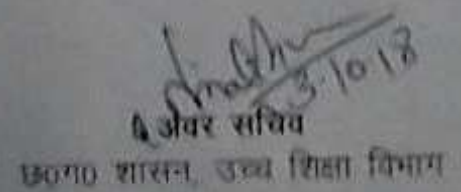 3.10.18
अवर सचिव
छ०ग० शासन, उच्च शिक्षा विभाग